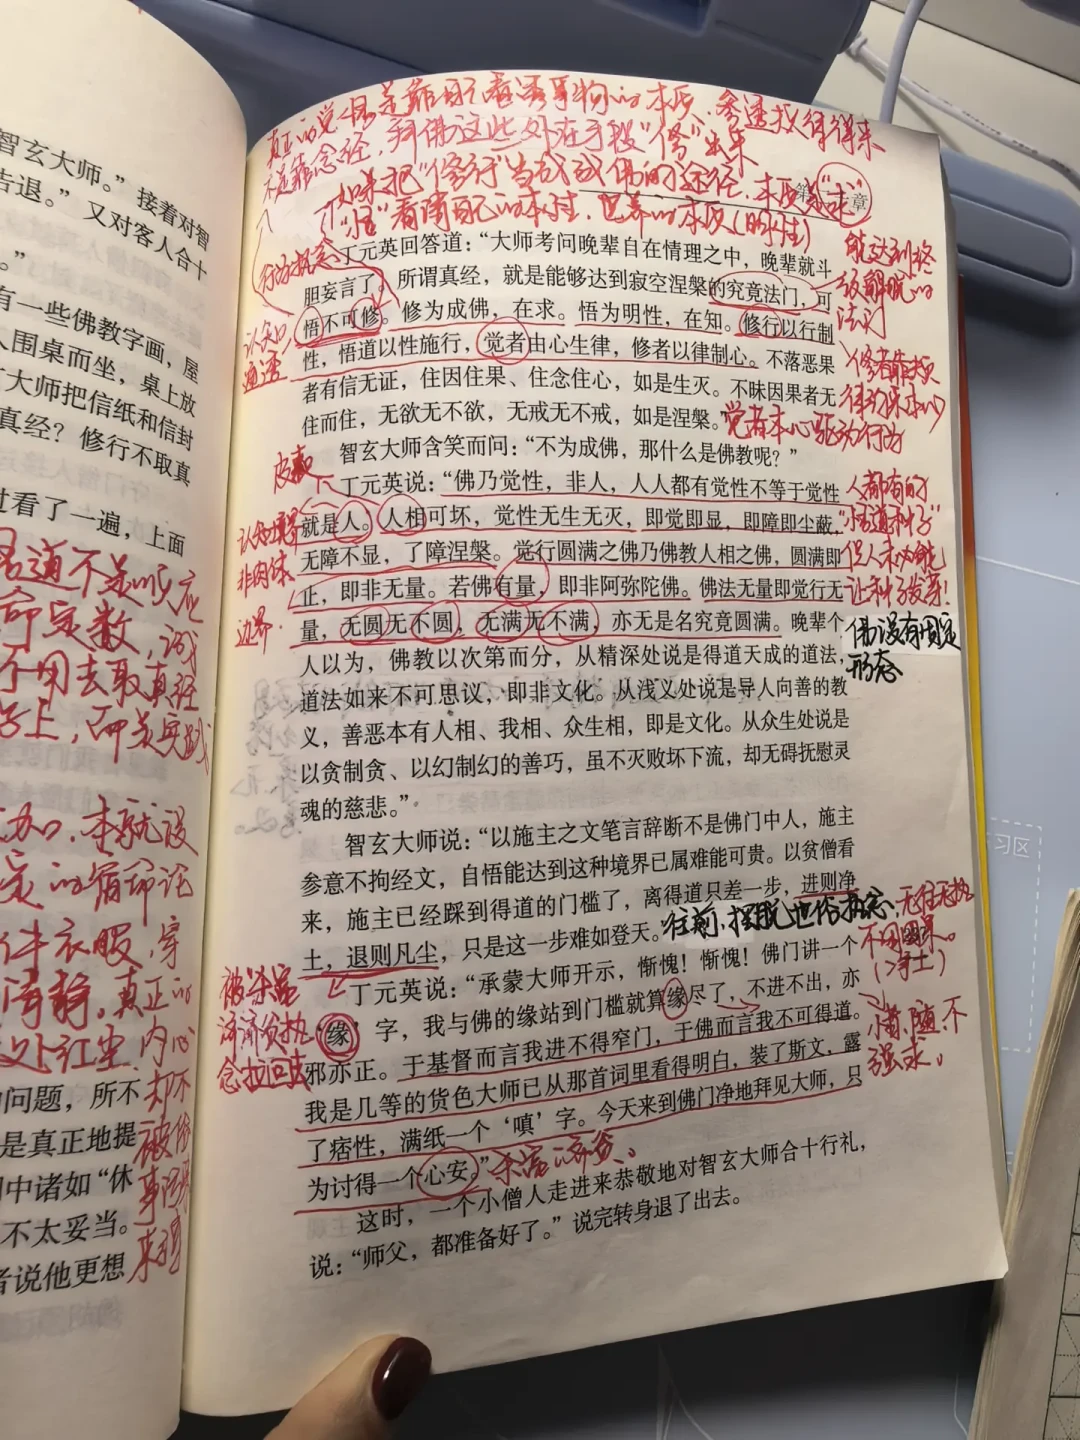 智玄大师。”接着对智
告退。”又对客人合十
。”
有一些佛教字画，屋
人围桌而坐，桌上放
大师把信纸和信封
真经？修行不取真
过看了一遍，上面
悟道不是
命定数，
不用去取真经
本就设
件衣服，穿
清静，真正的
处红尘，内心
问题，所不
却不
是真正地提
被俗
中诸如“休
事
不太妥当。
者说他更想
真正的觉悟是靠自己看透事物的本质，参透找得来
不是靠念经，拜佛这些外在手段“修”出来
如果把“修行”当成成佛的途径，本质是“求”
第 章
“悟”看清自己的本性，世界的本质（明性）
行为执念
丁元英回答道：“大师考问晚辈自在情理之中，晚辈就斗
胆妄言了。所谓真经，就是能够达到寂空涅槃的究竟法门，可
悟不可修。修为成佛，在求。悟为明性，在知。修行以行制
性，悟道以性施行，觉者由心生律，修者以律制心。不落恶果
者有信无证，住因住果、住念住心，如是生灭。不昧因果者无
住而住，无欲无不欲，无戒无不戒，如是涅槃。”
能达到终
级解脱的
法门
认知
通透
修者靠戒
律约束本心
觉者本心驱动行为
智玄大师含笑而问：“不为成佛，那什么是佛教呢？”
皮囊
丁元英说：“佛乃觉性，非人，人人都有觉性不等于觉性
就是人。人相可坏，觉性无生无灭，即觉即显，即障即尘蔽，
无障不显，了障涅槃。觉行圆满之佛乃佛教人相之佛，圆满即
止，即非无量。若佛有量，即非阿弥陀佛。佛法无量即觉行无
量，无圆无不圆，无满无不满，亦无是名究竟圆满。晚辈个
人以为，佛教以次第而分，从精深处说是得道天成的道法，
道法如来不可思议，即非文化。从浅义处说是导人向善的教
义，善恶本有人相、我相、众生相，即是文化。从众生处说是
以贪制贪、以幻制幻的善巧，虽不灭败坏下流，却无碍抚慰灵
魂的慈悲。”
人都有的
“悟道种子”
但人未必能
让种子发芽！
佛没有固定
形态
认知境界
非肉体
边界.
智玄大师说：“以施主之文笔言辞断不是佛门中人，施主
参意不拘经文，自悟能达到这种境界已属难能可贵。以贫僧看
来，施主已经踩到得道的门槛了，离得道只差一步，进则净
土，退则凡尘，只是这一步难如登天。”
往前，摆脱世俗执念，无住无执
不昧因果。
（净土）
丁元英说：“承蒙大师开示，惭愧！惭愧！佛门讲一个
‘缘’字，我与佛的缘站到门槛就算缘尽了，不进不出，亦
邪亦正。于基督而言我进不得窄门，于佛而言我不可得道。
我是几等的货色大师已从那首词里看得明白，装了斯文，露
了痞性，满纸一个‘嗔’字。今天来到佛门净地拜见大师，只
为讨得一个心安。”
杀富济贫。
被杀富
济贫执
念拉回去
惜，随，不
强求。
这时，一个小僧人走进来恭敬地对智玄大师合十行礼，
说：“师父，都准备好了。”说完转身退了出去。
习区